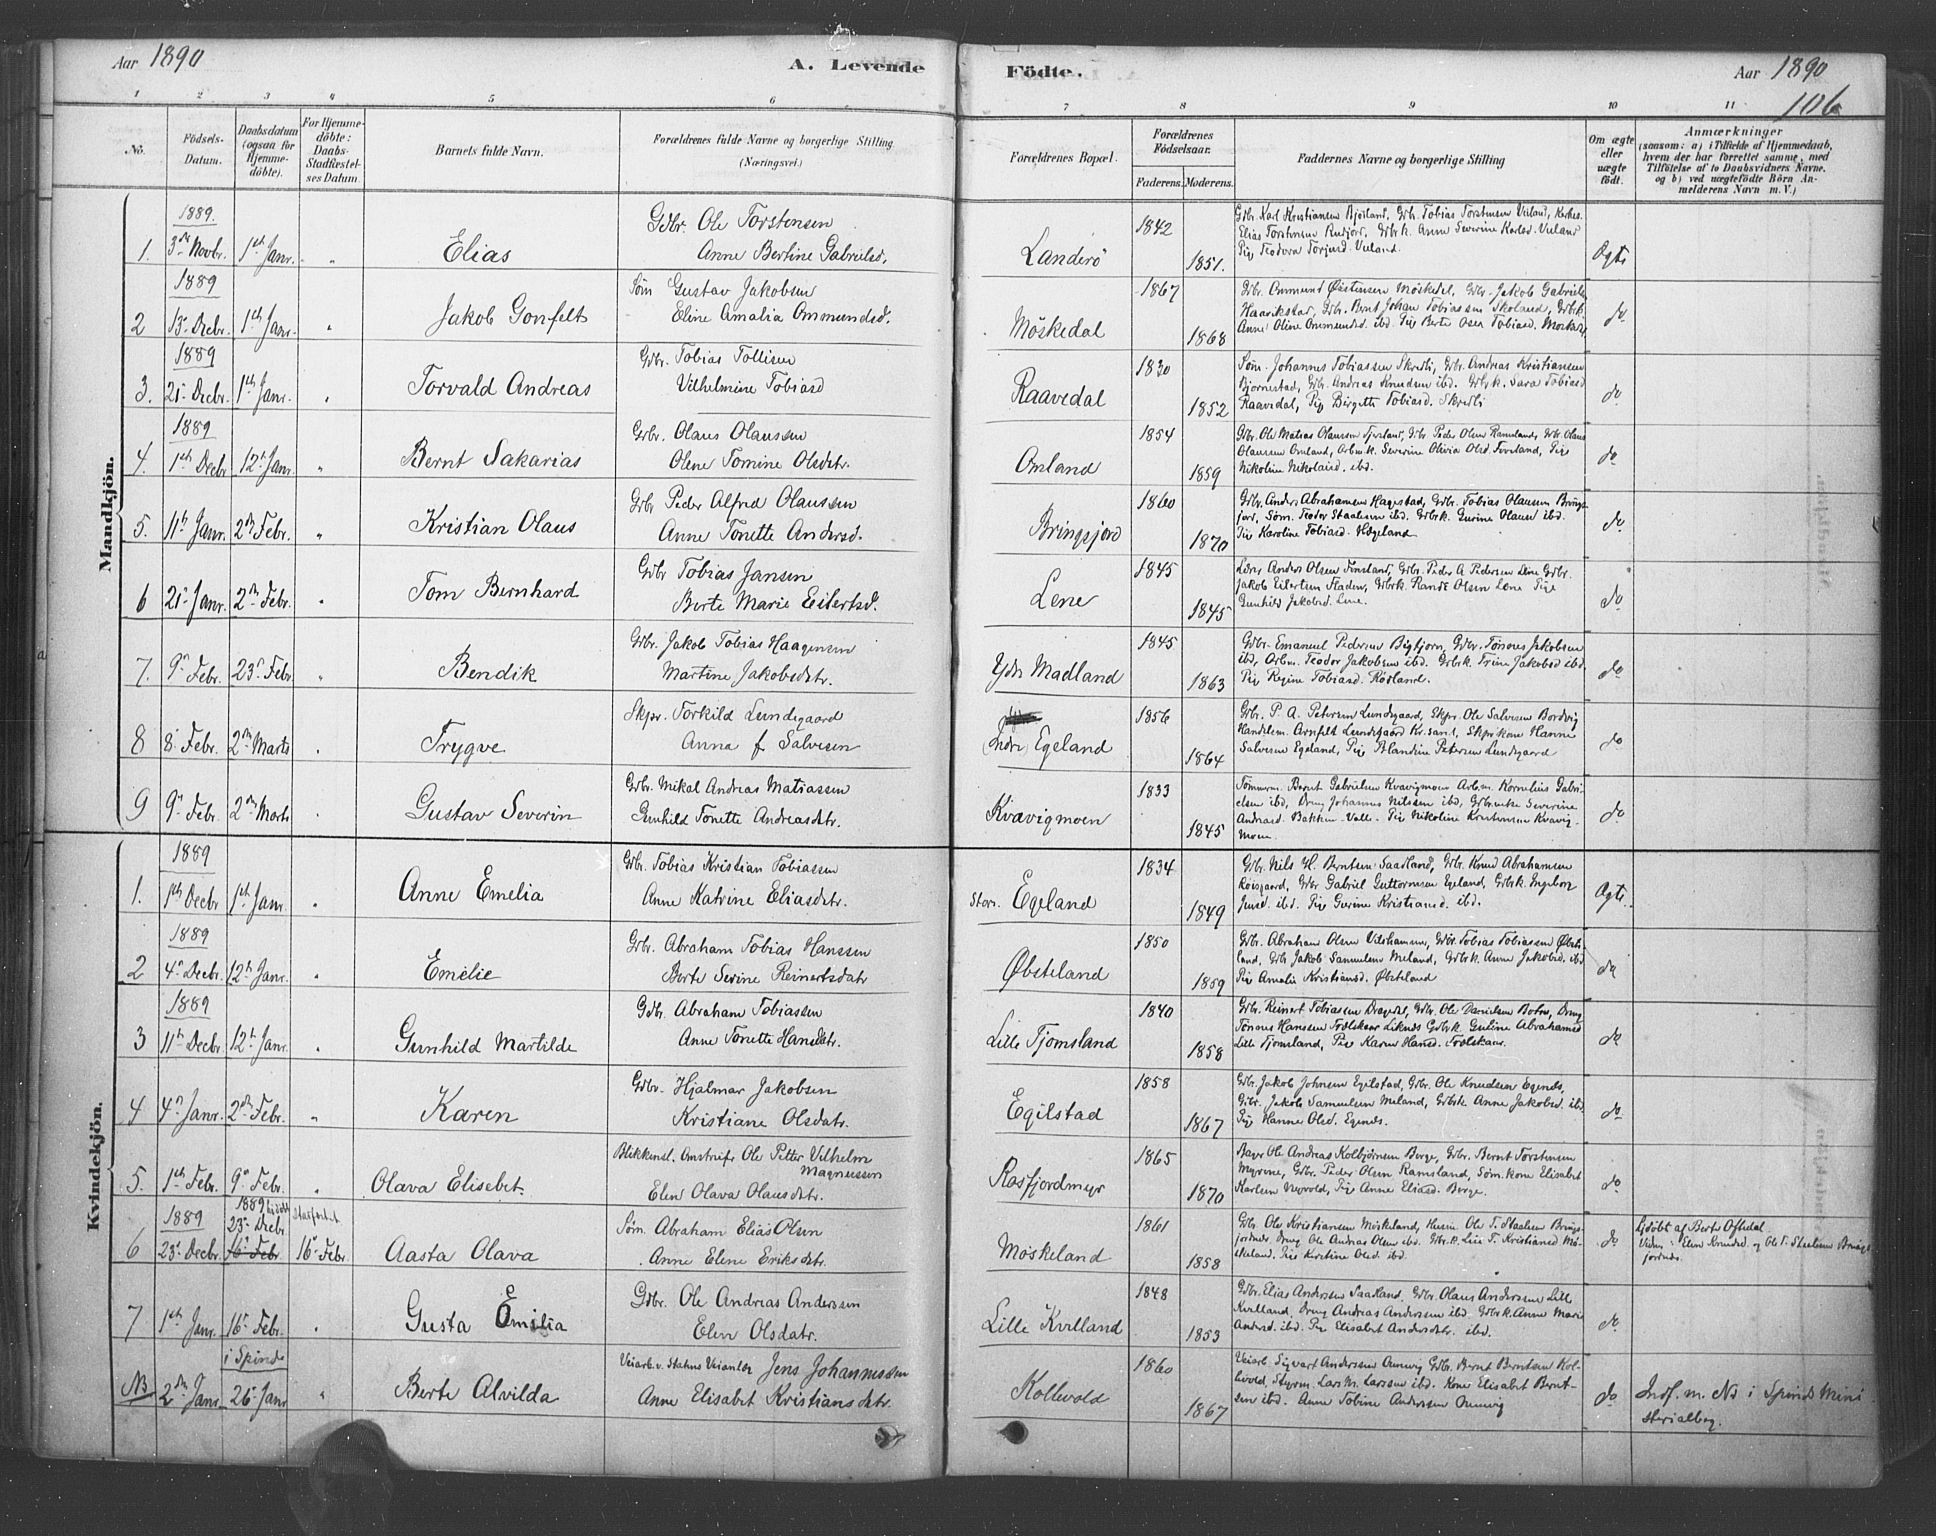 Aar 1890
A. Levende Födte.
Aar 1890
106
1 2 3 4 5 6 7 8 9 10 11
No.
Födsels-Datum.
Daabsdatum (ogsaa for Hjemme-döbte).
For Hjemme-döbte: Daabs-Stadfæstel-ses Datum.
Barnets fulde Navn.
Forældrenes fulde Navne og borgerlige Stilling (Næringsvei.)
Forældrenes Bopæl.
Forældrenes Födselsaar.
Faderens. Moderens.
Faddernes Navne og borgerlige Stilling
Om ægte eller uægte födt.
Anmærkninger
(saasom: a) i Tilfælde af Hjemmedaab, hvem der har forrettet samme, med Tilföielse af to Daabsvidners Navne, og b) ved uægtefödte Börn An-melderens Navn m. V.)
Mandkjön.
1889.
1. 3die Novbr. 1ste Janr. " Elias
Gdbr. Ole Torstensen
Anne Bertine Gabrielsd.
Landerö 1842 1851.
Gdbr. Karl Kristiansen Bjoiland, Grb. Tobias Torstensen Vieland, Kirkes. Elias Torstensen Rudjord, Gdbrk. Anne Severine Karlsd. Vieland Pige Teodora Torjusd. Vieland.
Ægte
1889
2 13de Decbr. 1ste Janr. " Jakob Gonfelt
Søm Gustav Jakobsen
Eline Amalia Ommundsd.
Möskedal 1867 1868
Gdbr. Ommund Øistensen Möskedal, Gdbr. Jakob Gabriels. Haarikstad, Gdbr. Bernt Johan Tobiassen Skoland, Gdbrk. Anne Oline Ommundsd. ibd. Pige Berte Osea Tobiasd.
do
1889
3. 21de Decbr. 1ste Janr. " Torvald Andreas
Gdbr. Tobias Tollisen
Vilhelmine Tobiasd
Raavedal 1830 1852
Søm. Johannes Tobiassen Skredli, Gdbr. Andreas Kristiansen Bjørnestad, Gdbr. Andreas Knudsen ibd. Gdbrk. Sara Tobiasd Raavedal, Pige Birgette Tobiasd. Skredli
do
1889
4. 1ste Decbr 12te Janr. " Bernt Sakarias
Gdbr. Olaus Olaussen
Olene Tomine Olsdatr.
Omland 1854 1859
Gdbr. Ole Matias Olaussen, Gdbr. Peder Olsen Ramsland, Gdbr. Olaus Olaussen Omland, Arbmk. Severine Olivia Olsd. Pige Nikoline Nikolaisd. ibd.
do
5. 11te Janr. 2den Febr. " Kristian Olaus
Gdbr Peder Alfred Olaussen
Anne Tonette Andersd.
Bringsjord 1860 1870
Gdbr. Anders Abrahamsen Hagestad, Gdbr. Tobias Olausen Brings-jord, Søm. Teodor Staalesen ibd. Gdbrk. Gurine Olausd ibd. Pige Karoline Tobiasd. Hægeland
do
6 21de Janr. 2den Febr. " Tom Bernhard
Gdbr Tobias Jansen
Berte Marie Eilertsd.
Lene 1845 1845
Lærer Anders Olsen Fintland, Gdbr. Peder A Pedersen Lene Gdbr. Jakob Eilertsen Fladen, Gdbrk. Randi Olsen Lene Pige Gunhild Jakobsd. Lene.
do
7. 9de Febr. 23de Febr " Bendik
Gdbr. Jakob Tobias Haagensen
Martine Jakobsdatr.
Ydr. Madland 1845 1863
Gdbr. Emanuel Pedersen Bigtjørn, Gdbr. Tønnes Jakobsen ibd, Arbm. Teodor Jakobsen ibd. Gdbrk. Trine Jakobsd ibd. Pige Regine Tobiasd. Kosland.
do
8 8de Febr. 2den Marts " Trygve
Skpr. Torkild Lundegaard
Anna f Salvesen
Indr. Egeland 1856 1864
Gdbr. P. A. Petersen Lundegaard, Skpr. Ole Salvesen Bordvig Handelsm. Arnfelt Lundegaard Kr.sand, Skprkone Hanne Salvesen Egeland, Pige Blandine Petersen Lundegaard
do
9 9de Febr. 2den Marts " Gustav Severin
Gdbr. Mikal Andreas Matiassen
Gunhild Tonette Andreasdatr.
Kvavigmoen 1833 1845
Tømmerm. Bernt Gabrielsen Kvavigmoen Arbm. Kornelius Gabri-elsen ibd, Dreng Johannes Nilssen ibd, Gdbrenke Severine Andreasd. Bakken - Valle. Pige Nikoline Kristensen Kvavig-moen.
do
Kvindekjön.
1889
1. 1ste Decbr 1ste Janr. " Anne Emelia
Gdbr. Tobias Kristian Tobiassen
Anne Katrine Eliasdatr.
Stor. Egeland 1834 1849
Gdbr. Nils H. Berntsen Saadland, Gdbr. Knud Abrahamsen Røisgaard, Gdbr Gabriel Guttormsen Egeland, Gdbrk. Ingeborg Jensd. ibd. Pige Gurine Kristiansd. ibd.
Ægte.
1889
2 4de Decbr. 12te Janr. " Emelie
Gdbr. Abraham Tobias Hanssen
Berte Serine Reinertsdatr
Øbsteland 1850 1859
Gdbr. Abraham Olsen, Gdbr. Tobias Tobiassen Øbste-land, Gdbr Jakob Samuelsen Meland, Gdbrk. Anne Jakobsd. ibd Pige Amalie Kristiansd. Øbsteland
do
1889
3 11te Decbr. 12te Janr. " Gunhild Martilde
Gdbr. Abraham Tobiassen
Anne Tonette Hansdatr.
Lille Tjomsland 1840 1858
Gdbr. Reinert Tobiassen Dragedal, Gdbr. Ole Danielsen Botne, Dreng Tønnes Hanssen Trælskaar Liknes Gdbrk. Guline Abrahamsd Lille Tjomsland, Pige Karen Hansd. Trælskaar.
do
4 4de Janr. 2den Febr. " Karen
Gdbr. Hjalmar Jakobsen
Kristiane Olsdatr.
Egilstad 1858 1867
Gdbr. Jakob Johnsen Egilstad, Gdbr. Ole Knudsen Egenes, Gdbr. Jakob Samuelsen Meland, Gdbrk. Anne Jakobsd. ibd. Pige Hanne Olsd. Egenes.
do
5. 1ste Febr. 9de Febr. " Olava Elisebet.
Blikkensl. Omstreifr Ole Petter Vilhelm Magnussen
Elen Olava Olausdatr.
Rosfjordmyr 1865 1870
Bager Ole Andreas Kolbjørnsen Berge, Gdbr. Bernt Torstensen Meyrene, Gdbr. Peder Olsen Ramsland, Sømkone Elisabet Karlsen Nyvold, Pige Anne Eliasd. Berge.
do
1889
6 23de Decbr. 1889 hjdøbt 23de Decbr 16de Febr. Stadfæstet 16de Febr. Aasta Olava
Søm. Abraham Elias Olsen
Anne Elene Eriksdatr.
Möskeland 1861 1858
Gdbr. Ole Kristiansen Möskeland, Husm. Ole T. Staalesen Brings-jordnes, Dreng Ole Andreas Olsen ibd. Gdbrk. Lise T. Kristiansd Mö-skeland. Pige Kirstine Olsd. ibd.
do
Hjdøbt af Berte Oftedal.
Vidner: Elen Knudsd. og Ole T. Staalesen Brings-jordnes.
7 1ste Janr. 16de Febr. " Gusta Emilia
Gdbr. Ole Andreas Anderssen
Elen Olsdatr.
Lille Kvilland 1848 1853
Gdbr. Elias Anderssen Saadland. Gdbr. Olaus Anderssen Lille Kvilland, Dreng Andreas Anderssen ibd Gdbrk. Anne Marie Andersd. ibd. Pige Elisabet Andersdatr. ibd.
do
i Spind
NB 2den Janr. 26de Janr " Berte Alvilda
Veiarb. v. Statens Veianlæg Jens Johannessen
Anne Elisabet Kristiansdatr.
Kollevold 1860 1867
Veiarb. Sigvart Anderssen Omvig Gdbr. Bernt Berntsen Kol-levold, Styrm. Lars M. Larssen ibd. Kone Elisabet Bernt-sen ibd. Anne Tobine Anderssen Omvig
do
Indf. m. No i Spinds Mini-sterialbog.